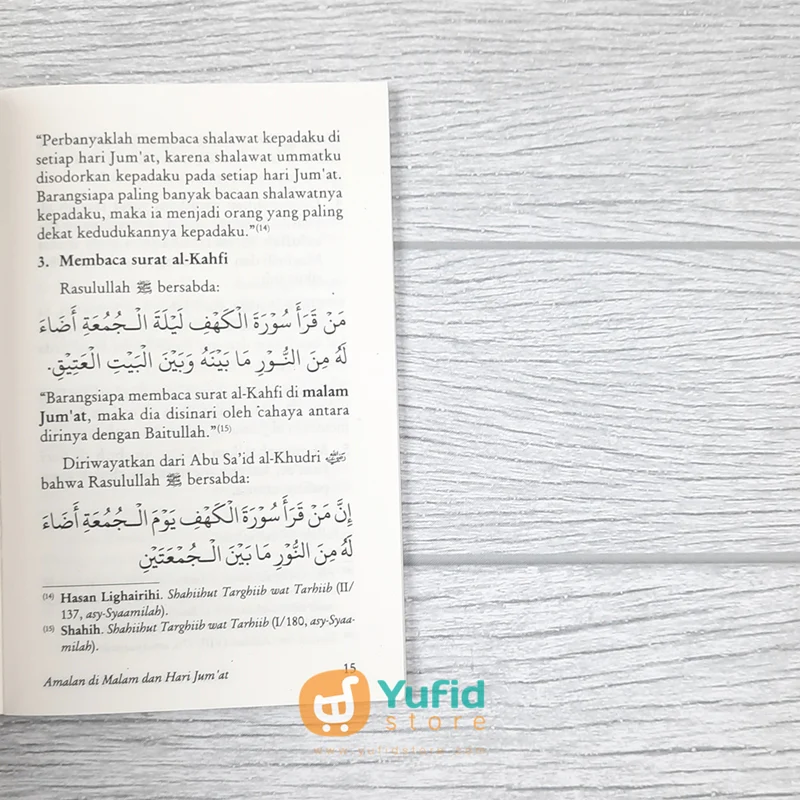 “Perbanyaklah membaca shalawat kepadaku di
setiap hari Jum'at, karena shalawat ummatku
disodorkan kepadaku pada setiap hari Jum'at.
Barangsiapa paling banyak bacaan shalawatnya
kepadaku, maka ia menjadi orang yang paling
dekat kedudukannya kepadaku.”(14)
3. Membaca surat al-Kahfi
Rasulullah ﷺ bersabda:
مَنْ قَرَأَ سُوْرَةَ الْكَهْفِ لَيْلَةَ الْـجُمُعَةِ أَضَاءَ
لَهُ مِنَ النُّـوْرِ مَا بَيْنَهُ وَبَيْنَ الْبَيْتِ الْعَتِيْقِ.
“Barangsiapa membaca surat al-Kahfi di malam
Jum'at, maka dia disinari oleh cahaya antara
dirinya dengan Baitullah.”(15)
Diriwayatkan dari Abu Sa'id al-Khudri
bahwa Rasulullah ﷺ bersabda:
إِنَّ مَنْ قَرَأَ سُوْرَةَ الْكَهْفِ يَوْمَ الْـجُمُعَةِ أَضَاءَ
لَهُ مِنَ النُّوْرِ مَا بَيْنَ الْـجُمْعَتَيْنِ
(14) Hasan Lighairihi. Shahiihut Targhiib wat Tarhiib (II/
137, asy-Syaamilah).
(15) Shahih. Shahiihut Targhiib wat Tarhiib (I/180, asy-Syaa-
milah).
15
Amalan di Malam dan Hari Jum'at
Yufid
store
www.yufidstore.com